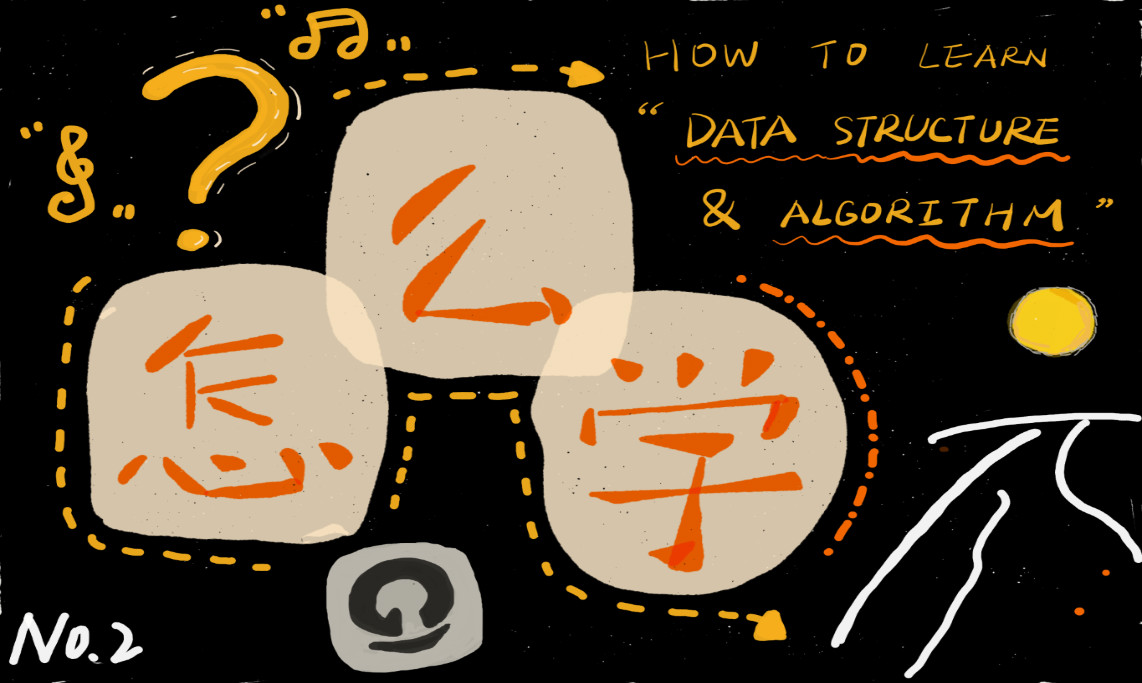 HOW TO LEARN
“DATA STRUCTURE
& ALGORITHM”
怎么学
No.2